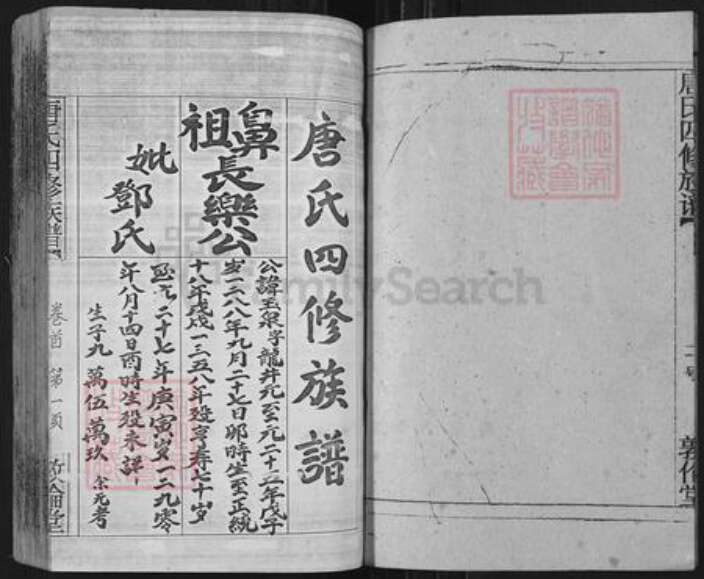 唐氏四修族譜
鼻祖長樂公
公諱玉泉字龍井元至元二十五年戊子
歲一二八八年九月二十七日卯時生至正統
十八年戊戌一三五八年歿享寿七十歲
妣鄧氏
至元二十七年庚寅歲一二九零
年八月十四日酉時生歿未詳
生子九 萬伍 萬玖 余无考
唐氏四修族譜
卷首 第一頁
唐氏四修族譜
敦倫堂
FamilySearch